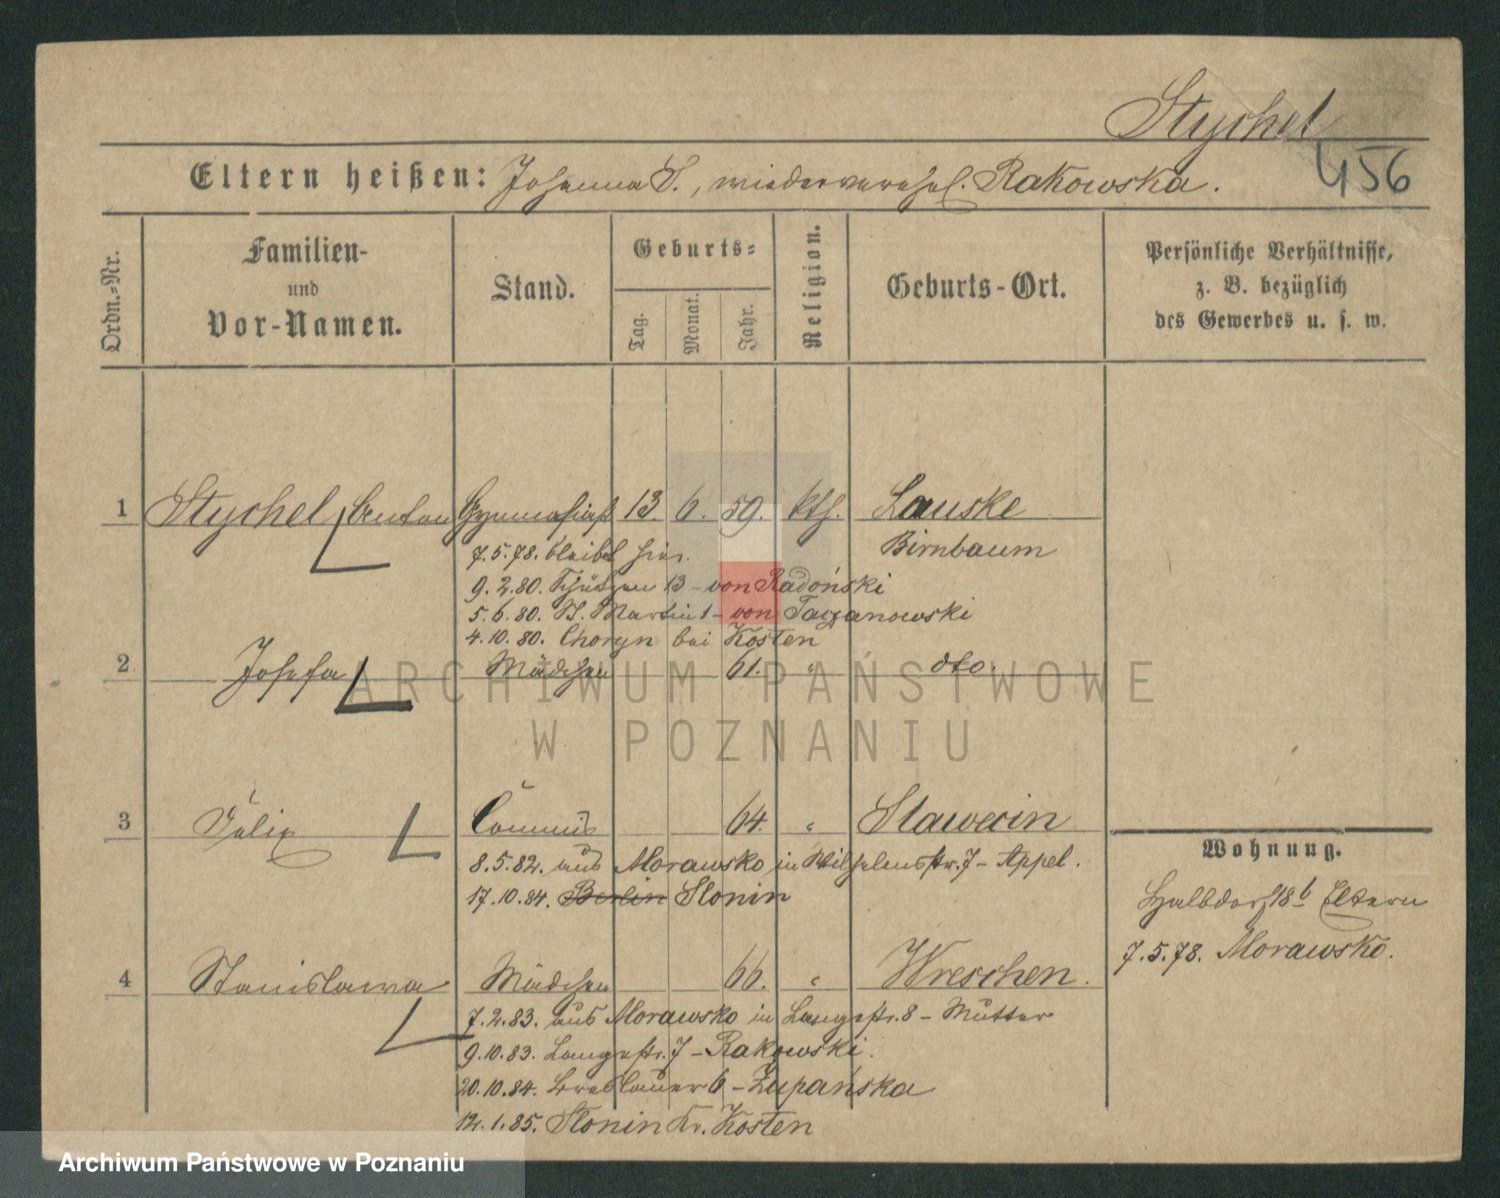 Stychel
456
Eltern heißen: Johanna S., wiederverehel. Rakowska.
Ordn.-Nr.
Familien-
und
Vor-Namen.
Stand.
Geburts-
Tag.
Monat.
Jahr.
Religion.
Geburts-Ort.
Persönliche Verhältnisse,
z. B. bezüglich
des Gewerbes u. s. w.
1 Stychel Anton Gymnasiast 13. 6. 59. kth. Lauske
7.5.78. bleibt hier. Birnbaum
9.2.80. Schützen 13 - von Radoński
5.6.80. St. Martin 1 - von Taczanowski
4.10.80. Choryn bei Kosten
2 Josefa Mädchen 61. " dto.
3 Felix Commis 64. " Slawerin
8.5.82. aus Morawsko in Wilhelmstr. 7 - Appel.
17.10.84. Berlin Slonin
4 Stanislawa Mädchen 66. " Wreschen.
7.2.83. aus Morawsko in Langestr. 8 - Mutter
9.10.83. Langestr. 7 - Rakowski.
20.10.84. Breslauer 6 - Županska
12.1.85. Slonin Kr. Kosten
Wohnung.
Halbdorf 18b Eltern
7.5.78. Morawsko.
ARCHIWUM PAŃSTWOWE
W POZNANIU
Archiwum Państwowe w Poznaniu